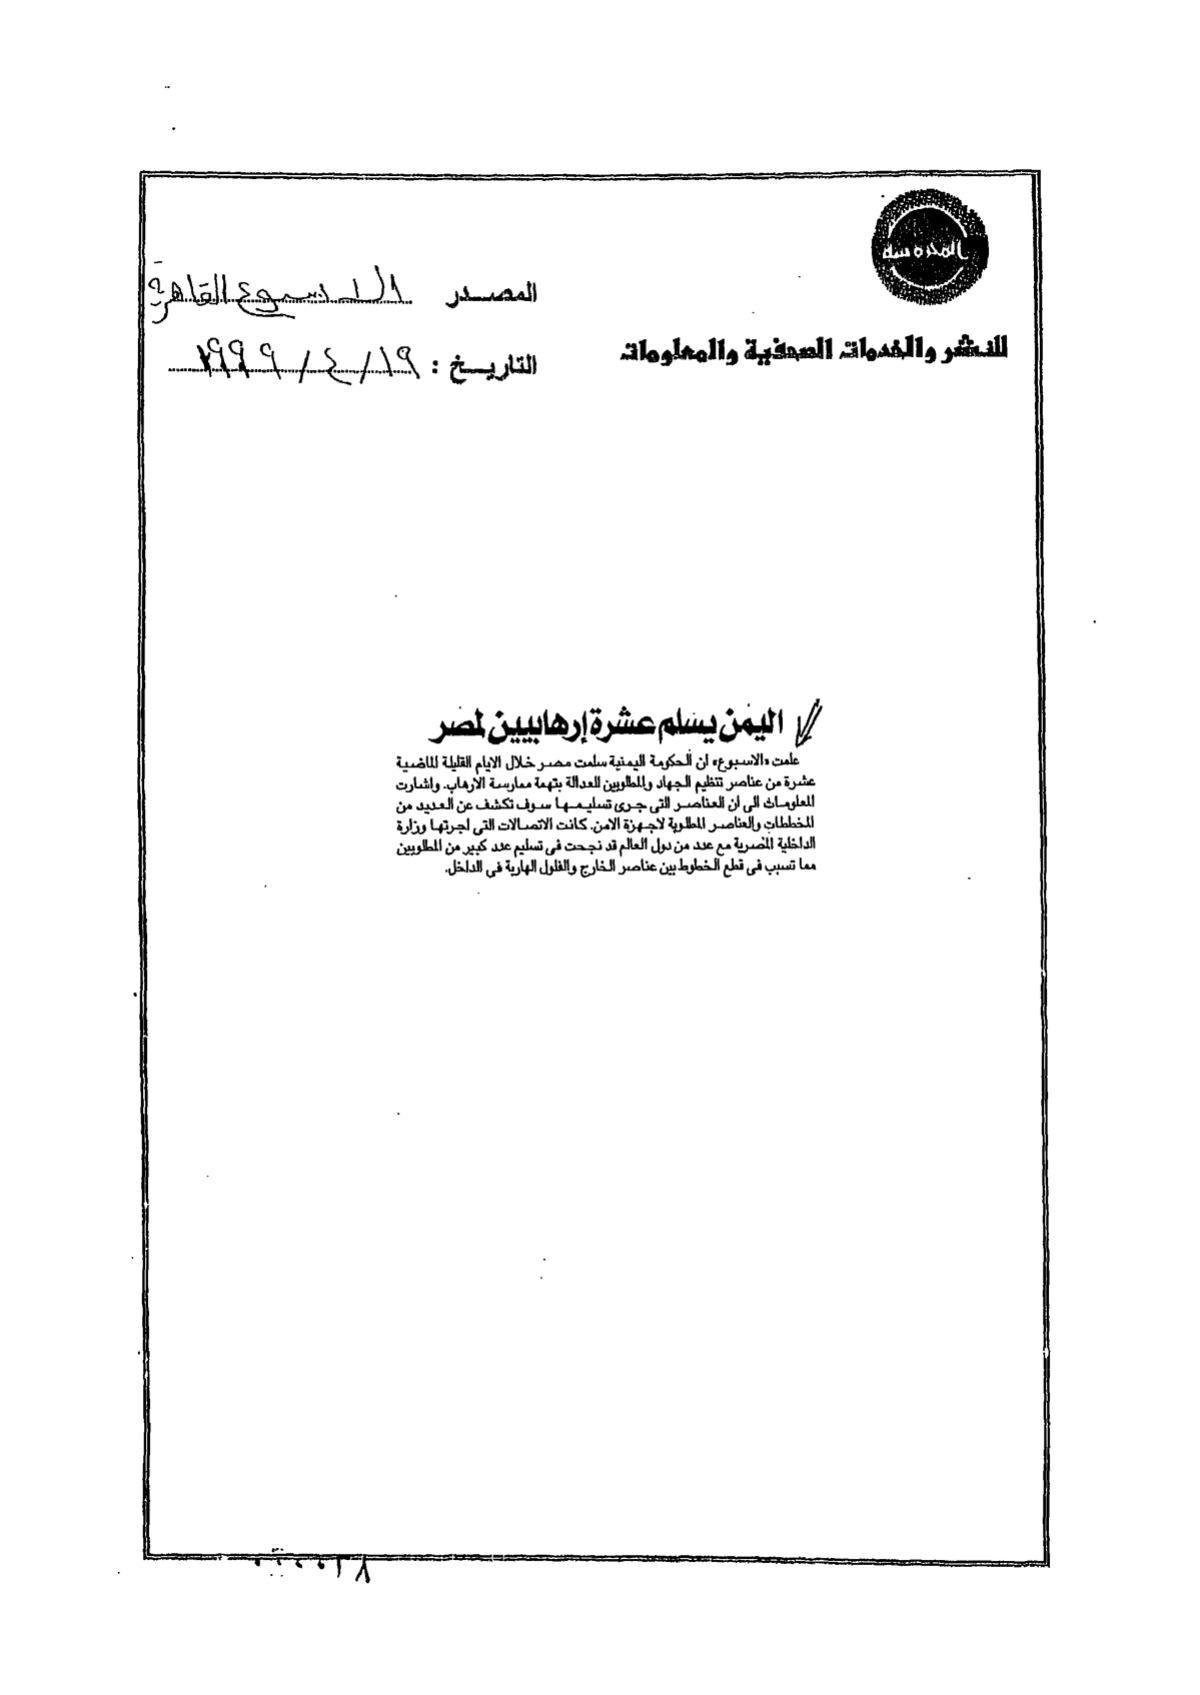 المحروسة
للنشر والخدمات الصحفية والمعلومات
المصدر الاسبوع القاهرية
التاريخ : ١٩ / ٤ / ١٩٩٩
اليمن يسلم عشرة إرهابيين لمصر
علمت «الاسبوع» ان الحكومة اليمنية سلمت مصر خلال الايام القليلة الماضية
عشرة من عناصر تنظيم الجهاد والمطلوبين للعدالة بتهمة ممارسة الارهاب. واشارت
المعلومات الى ان العناصر التى جرى تسليمها سوف تكشف عن العديد من
المخططات والعناصر المطلوبة لاجهزة الامن. كانت الاتصالات التى اجرتها وزارة
الداخلية المصرية مع عدد من دول العالم قد نجحت فى تسليم عدد كبير من المطلوبين
مما تسبب فى قطع الخطوط بين عناصر الخارج والفلول الهاربة فى الداخل.